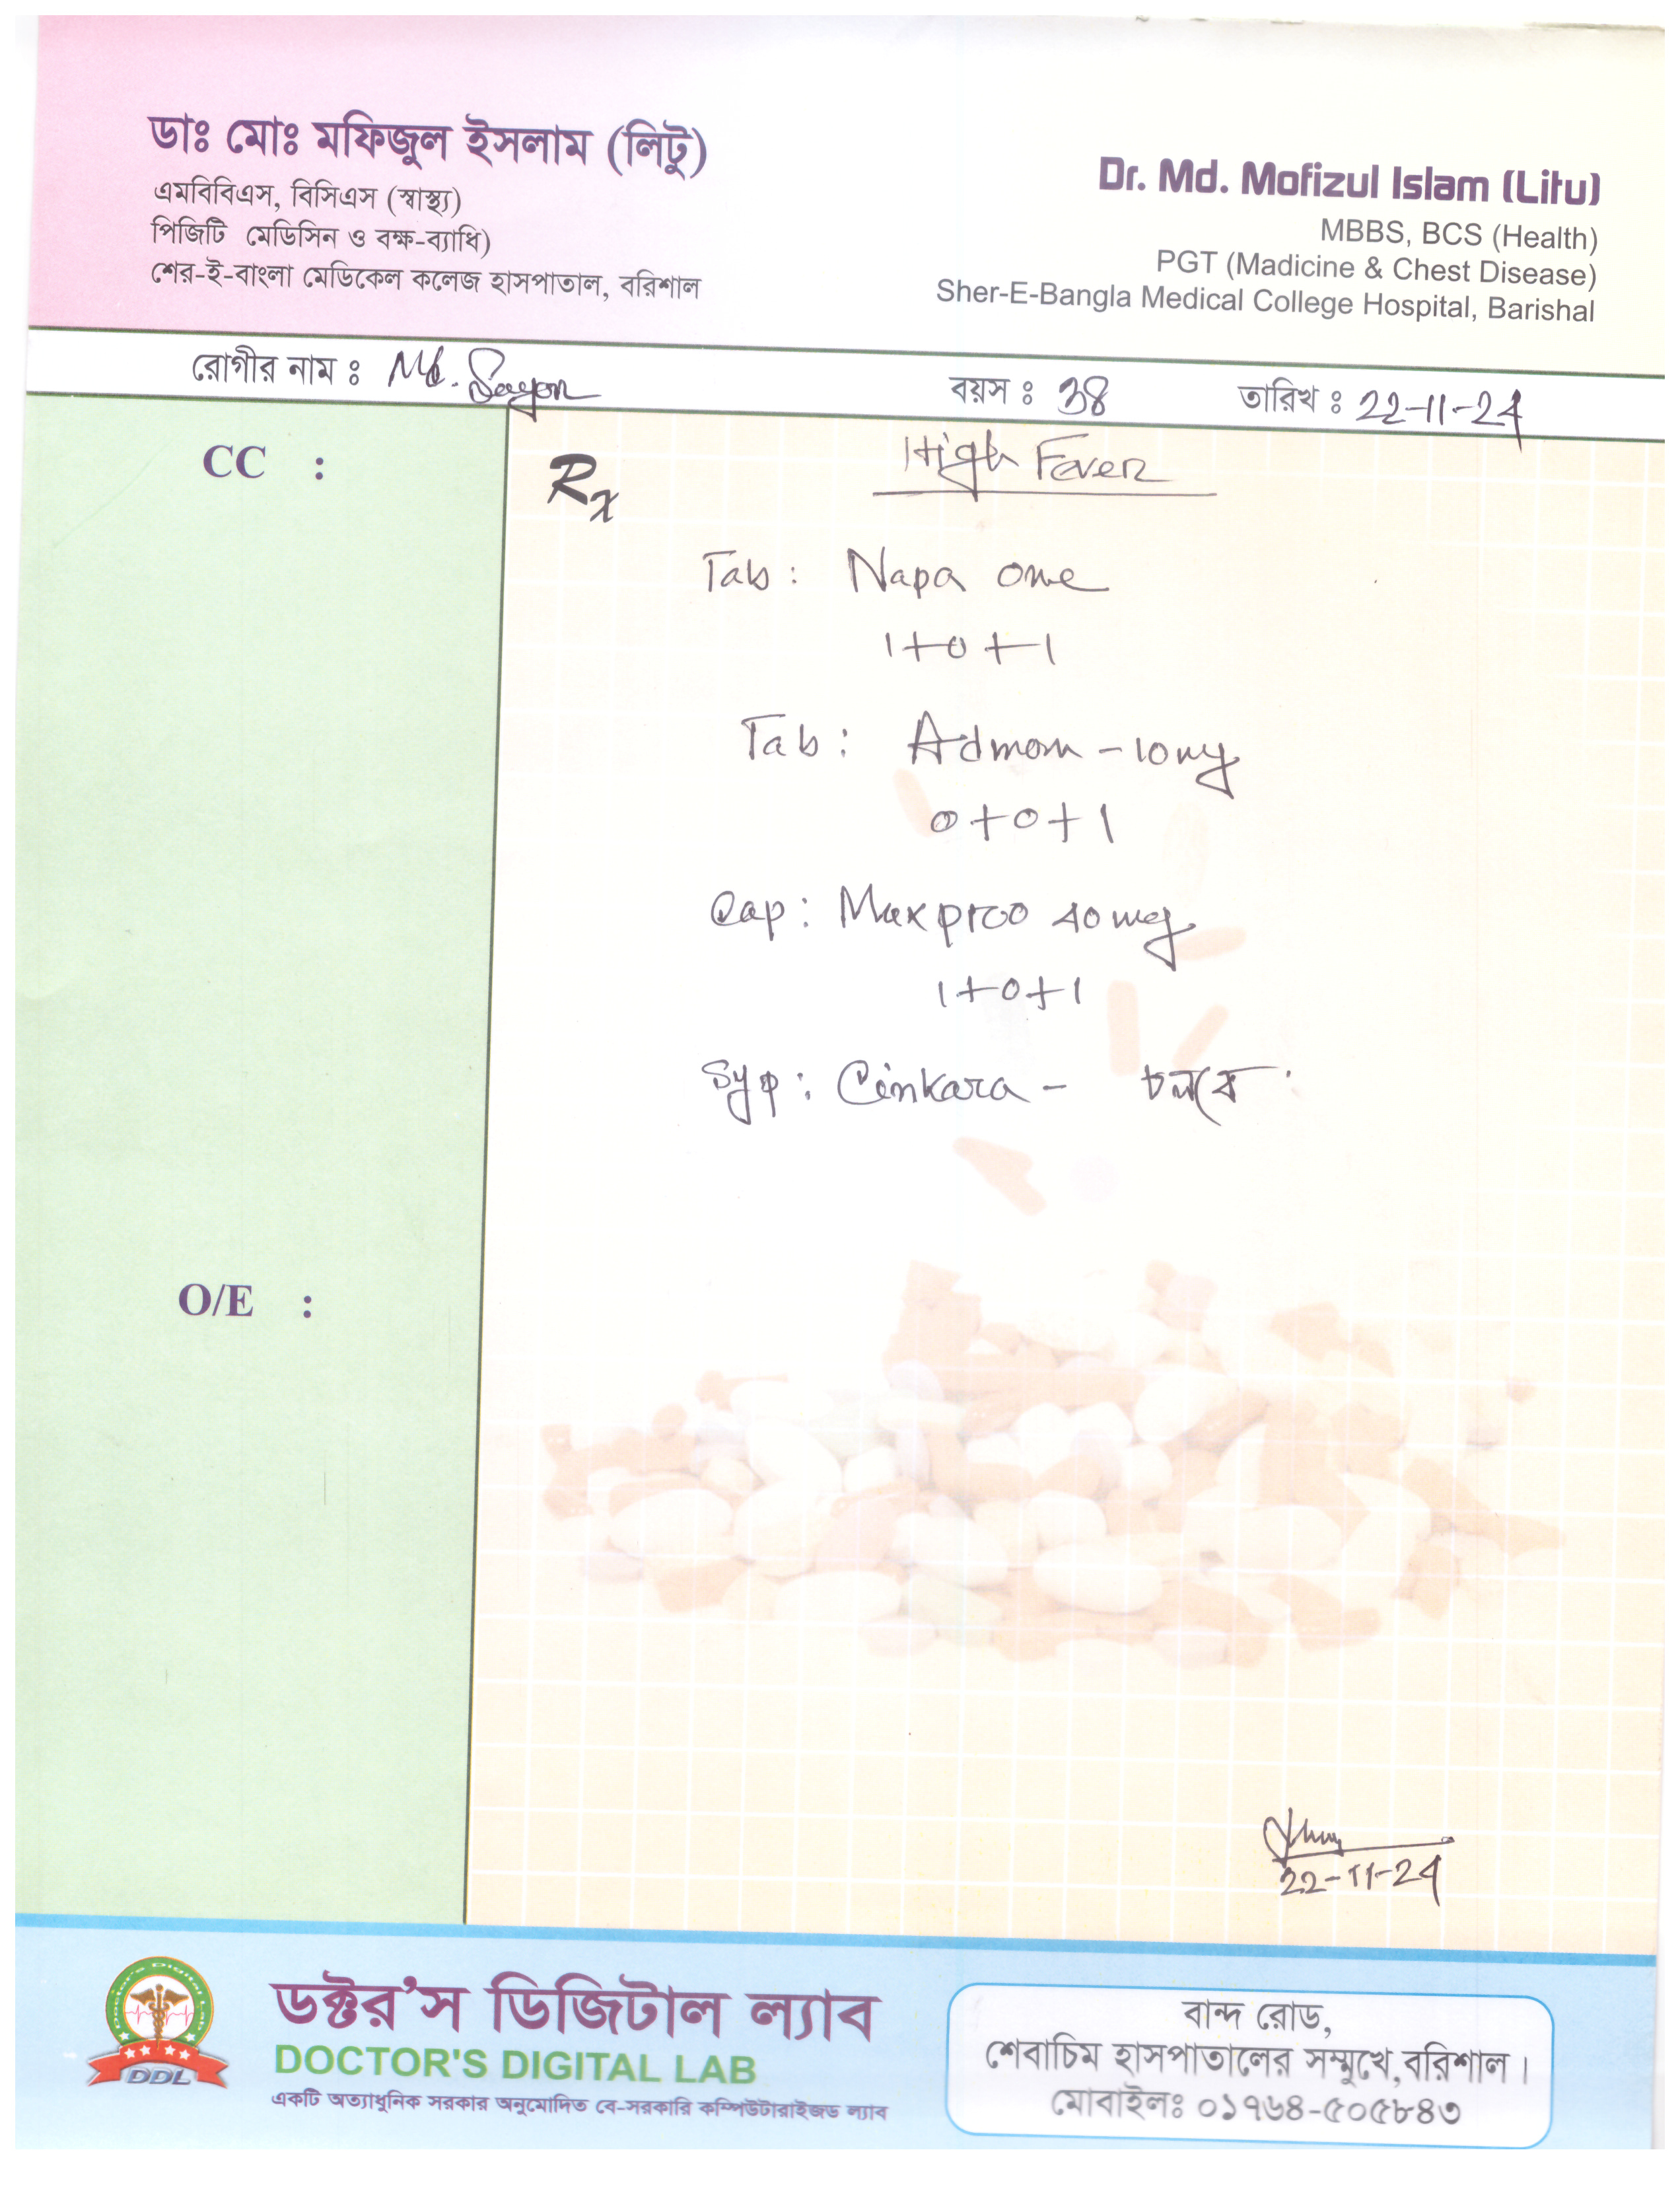 ডাঃ মোঃ মফিজুল ইসলাম (লিটু)
এমবিবিএস, বিসিএস (স্বাস্থ্য)
পিজিটি মেডিসিন ও বক্ষ-ব্যাধি)
শের-ই-বাংলা মেডিকেল কলেজ হাসপাতাল, বরিশাল
Dr. Md. Mofizul Islam (Litu)
MBBS, BCS (Health)
PGT (Madicine & Chest Disease)
Sher-E-Bangla Medical College Hospital, Barishal
রোগীর নাম : Md. বয়স : 38 তারিখ : 22-11-24
CC :
Rx
High Fever
Tab: Napa one
1+0+1
Tab: Admom - 10mg
0+0+1
Cap: Maxpro 40mg
1+0+1
Syp: Cinkara - চলবে
O/E :
22-11-24
Doctor's Digital Lab
DDL
ডক্টর'স ডিজিটাল ল্যাব
DOCTOR'S DIGITAL LAB
একটি অত্যাধুনিক সরকার অনুমোদিত বে-সরকারি কম্পিউটারাইজড ল্যাব
বান্দ রোড,
শেবাচিম হাসপাতালের সম্মুখে,বরিশাল।
মোবাইলঃ ০১৭৬৪-৫০৫৮৪৩